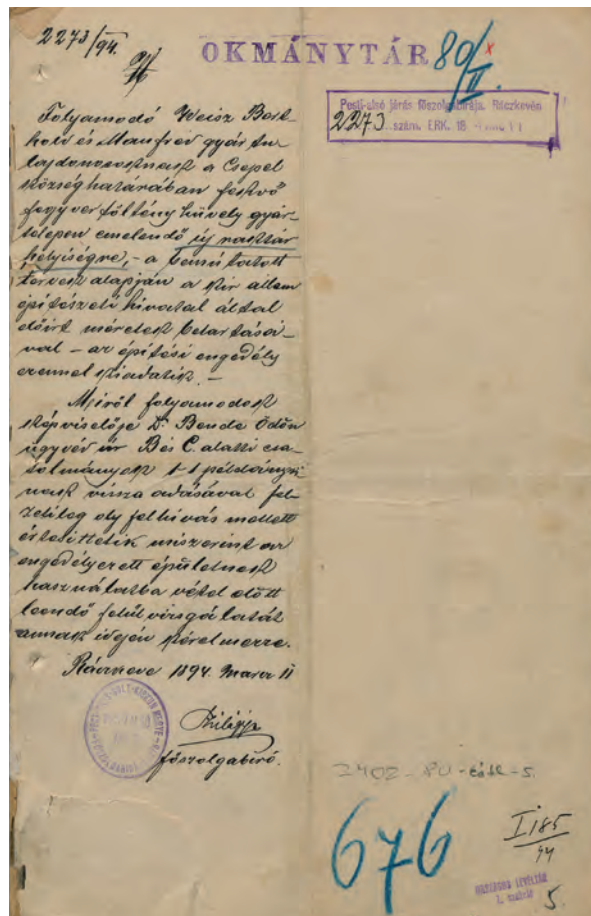 2273/94.
OKMÁNYTÁR
80/II.
Pesti-alsó járás főszolgabirája. Ráczkevén
2273 szám. ERK. 18
Folyamodó Weisz Bert-
hold és Manfred gyár tu-
lajdonosoknak a Csepel
község határában fekvő
fegyver töltény hüvely gyár-
telepen emelendő új raktár
helyiségre, - a bemutatott
tervek alapján a kir állam
épitészeti hivatal által
előirt méretek betartásá-
val - az épitési engedély
ezennel kiadatik. -
Miről folyamodók
képviselője Dr Bende Ödön
ügyvéd úr B és C. alatti csa-
tolmányok 1-1 példányai-
nak vissza adásával fel-
zetileg oly felhivás mellett
értesittetik miszerint az
engedélyezett épületnek
használatba vétel előtt
leendő felül vizsgálatát
annak idején kérelmezze.
Ráczkeve 1894. Marcz 11
főszolgabiró.
2402 - PU - - 5.
676
I 185/94
ORSZÁGOS LEVÉLTÁR
5.